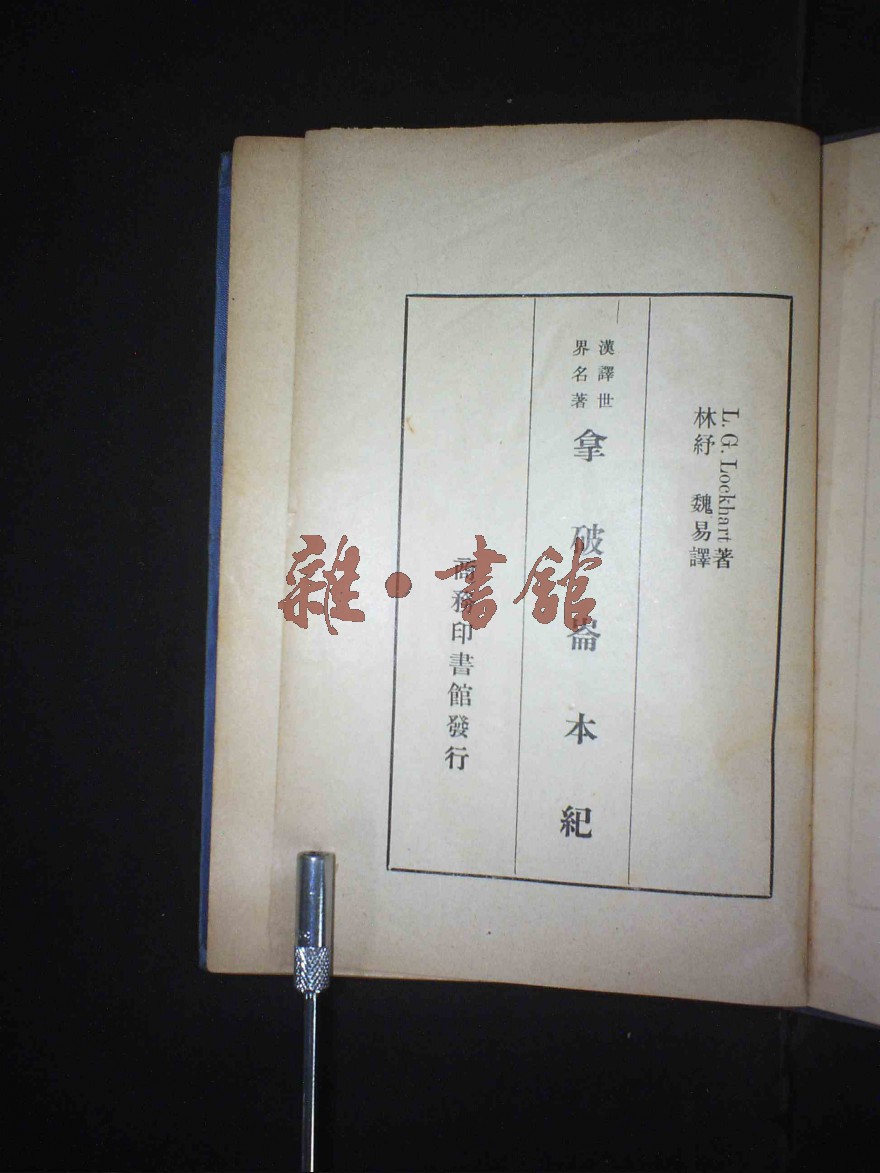 L. G. Lockhart著
林紓 魏易譯
漢譯世
界名著
拿破崙本紀
商務印書館發行
雜·書館